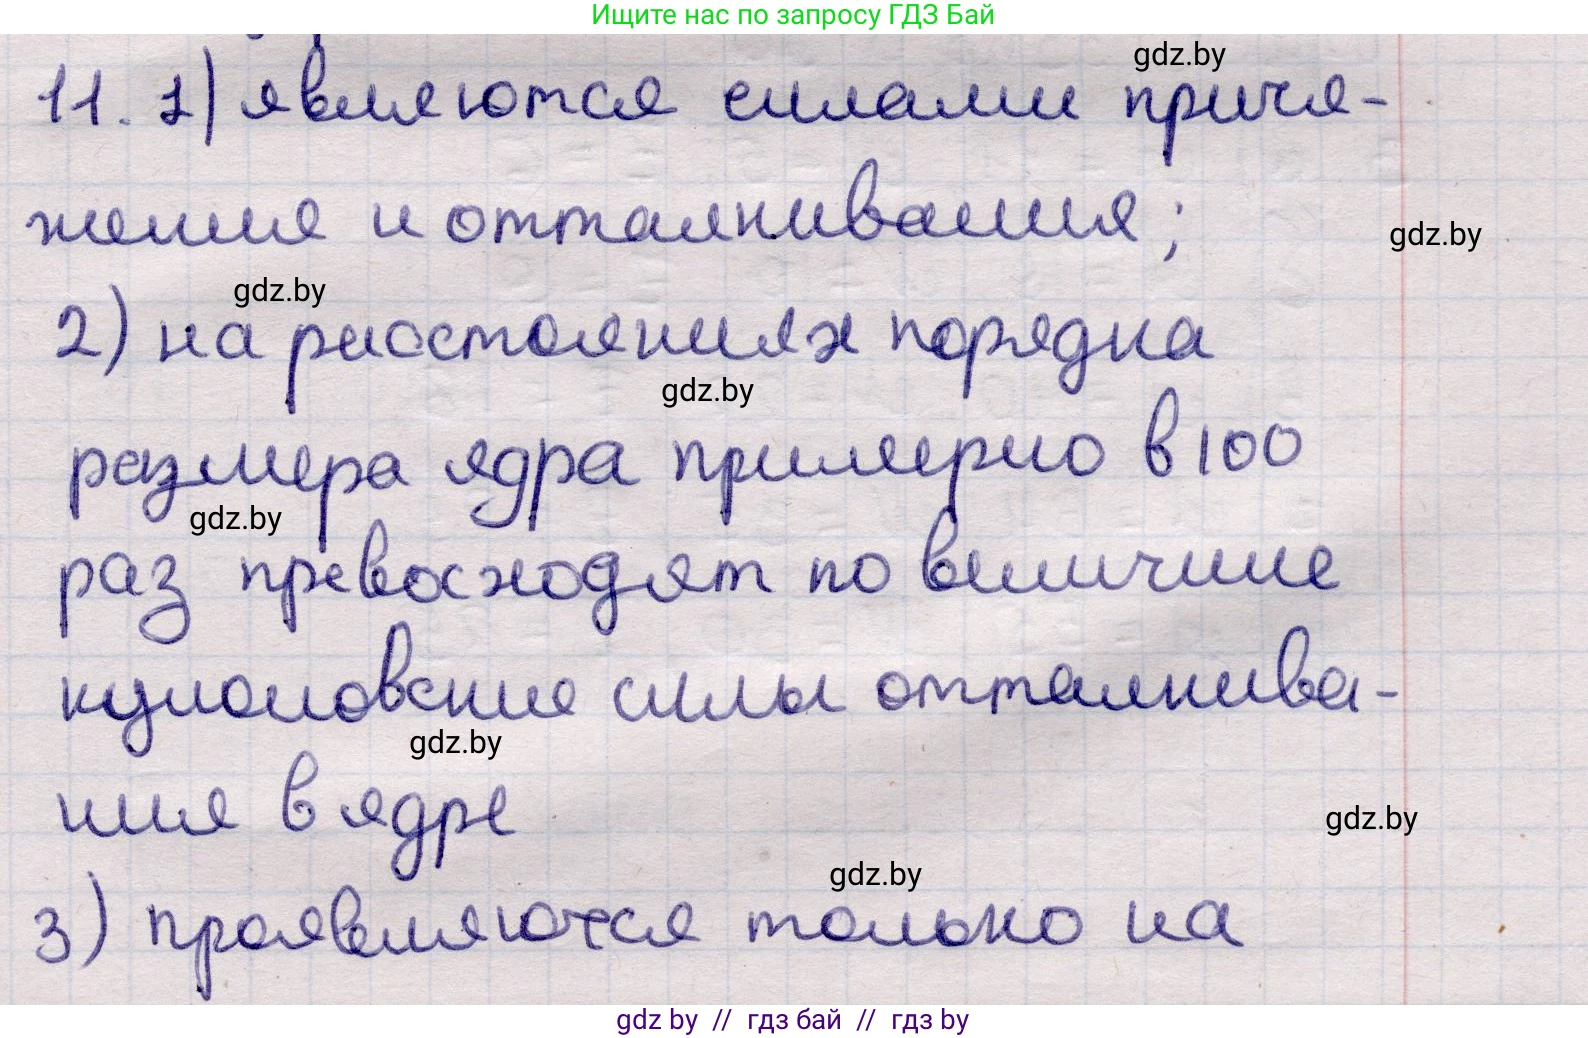 Ищите нас по запросу ГДЗ Бай
gdz.by
11. 1) являются силами притя-
жения и отталкивания;
gdz.by
gdz.by
2) на расстояниях порядка
gdz.by
размера ядра примерно в 100
gdz.by
раз превосходят по величине
кулоновские силы отталкива-
gdz.by
ния в ядре
gdz.by
gdz.by
3) проявляются только на
gdz by // гдз бай // гдз by